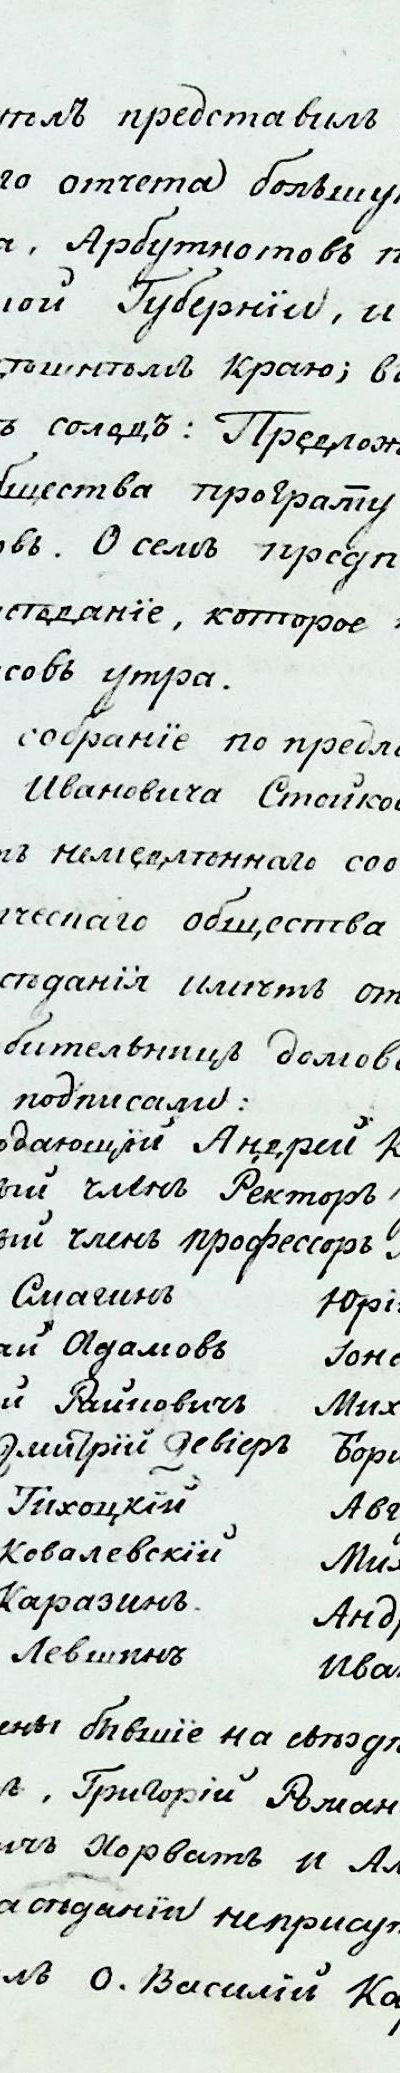 представилъ
го отчета большу
а, Арбутнотовъ п
ной Губернїи, и
Краю; въ
ъ солодъ: Предлож
бщества програму
овъ. О семъ предп
аседанїе, которое
совъ утра.
собранїе по предло
Ивановича Стойков
немедлѣннаго соо
ическаго общества
сѣданїя имѣетъ от
бительницъ домов
подписали:
одающїй Андрей К
ый членъ Ректоръ
ый членъ профессоръ
Смагинъ Юрі
ай Адамовъ Іоно
й Райновичъ Мих
Дмитрїй Девіеръ Бори
Тихоцкїй Авг
Ковалевскїй Мих
Каразинъ. Анд
Левшинъ Ива
ены бывшїе на съѣзд
ъ, Григорїй Роман
ичъ Хорватъ и Ал
засѣданїи неприсут
лъ О. Василїй Ка